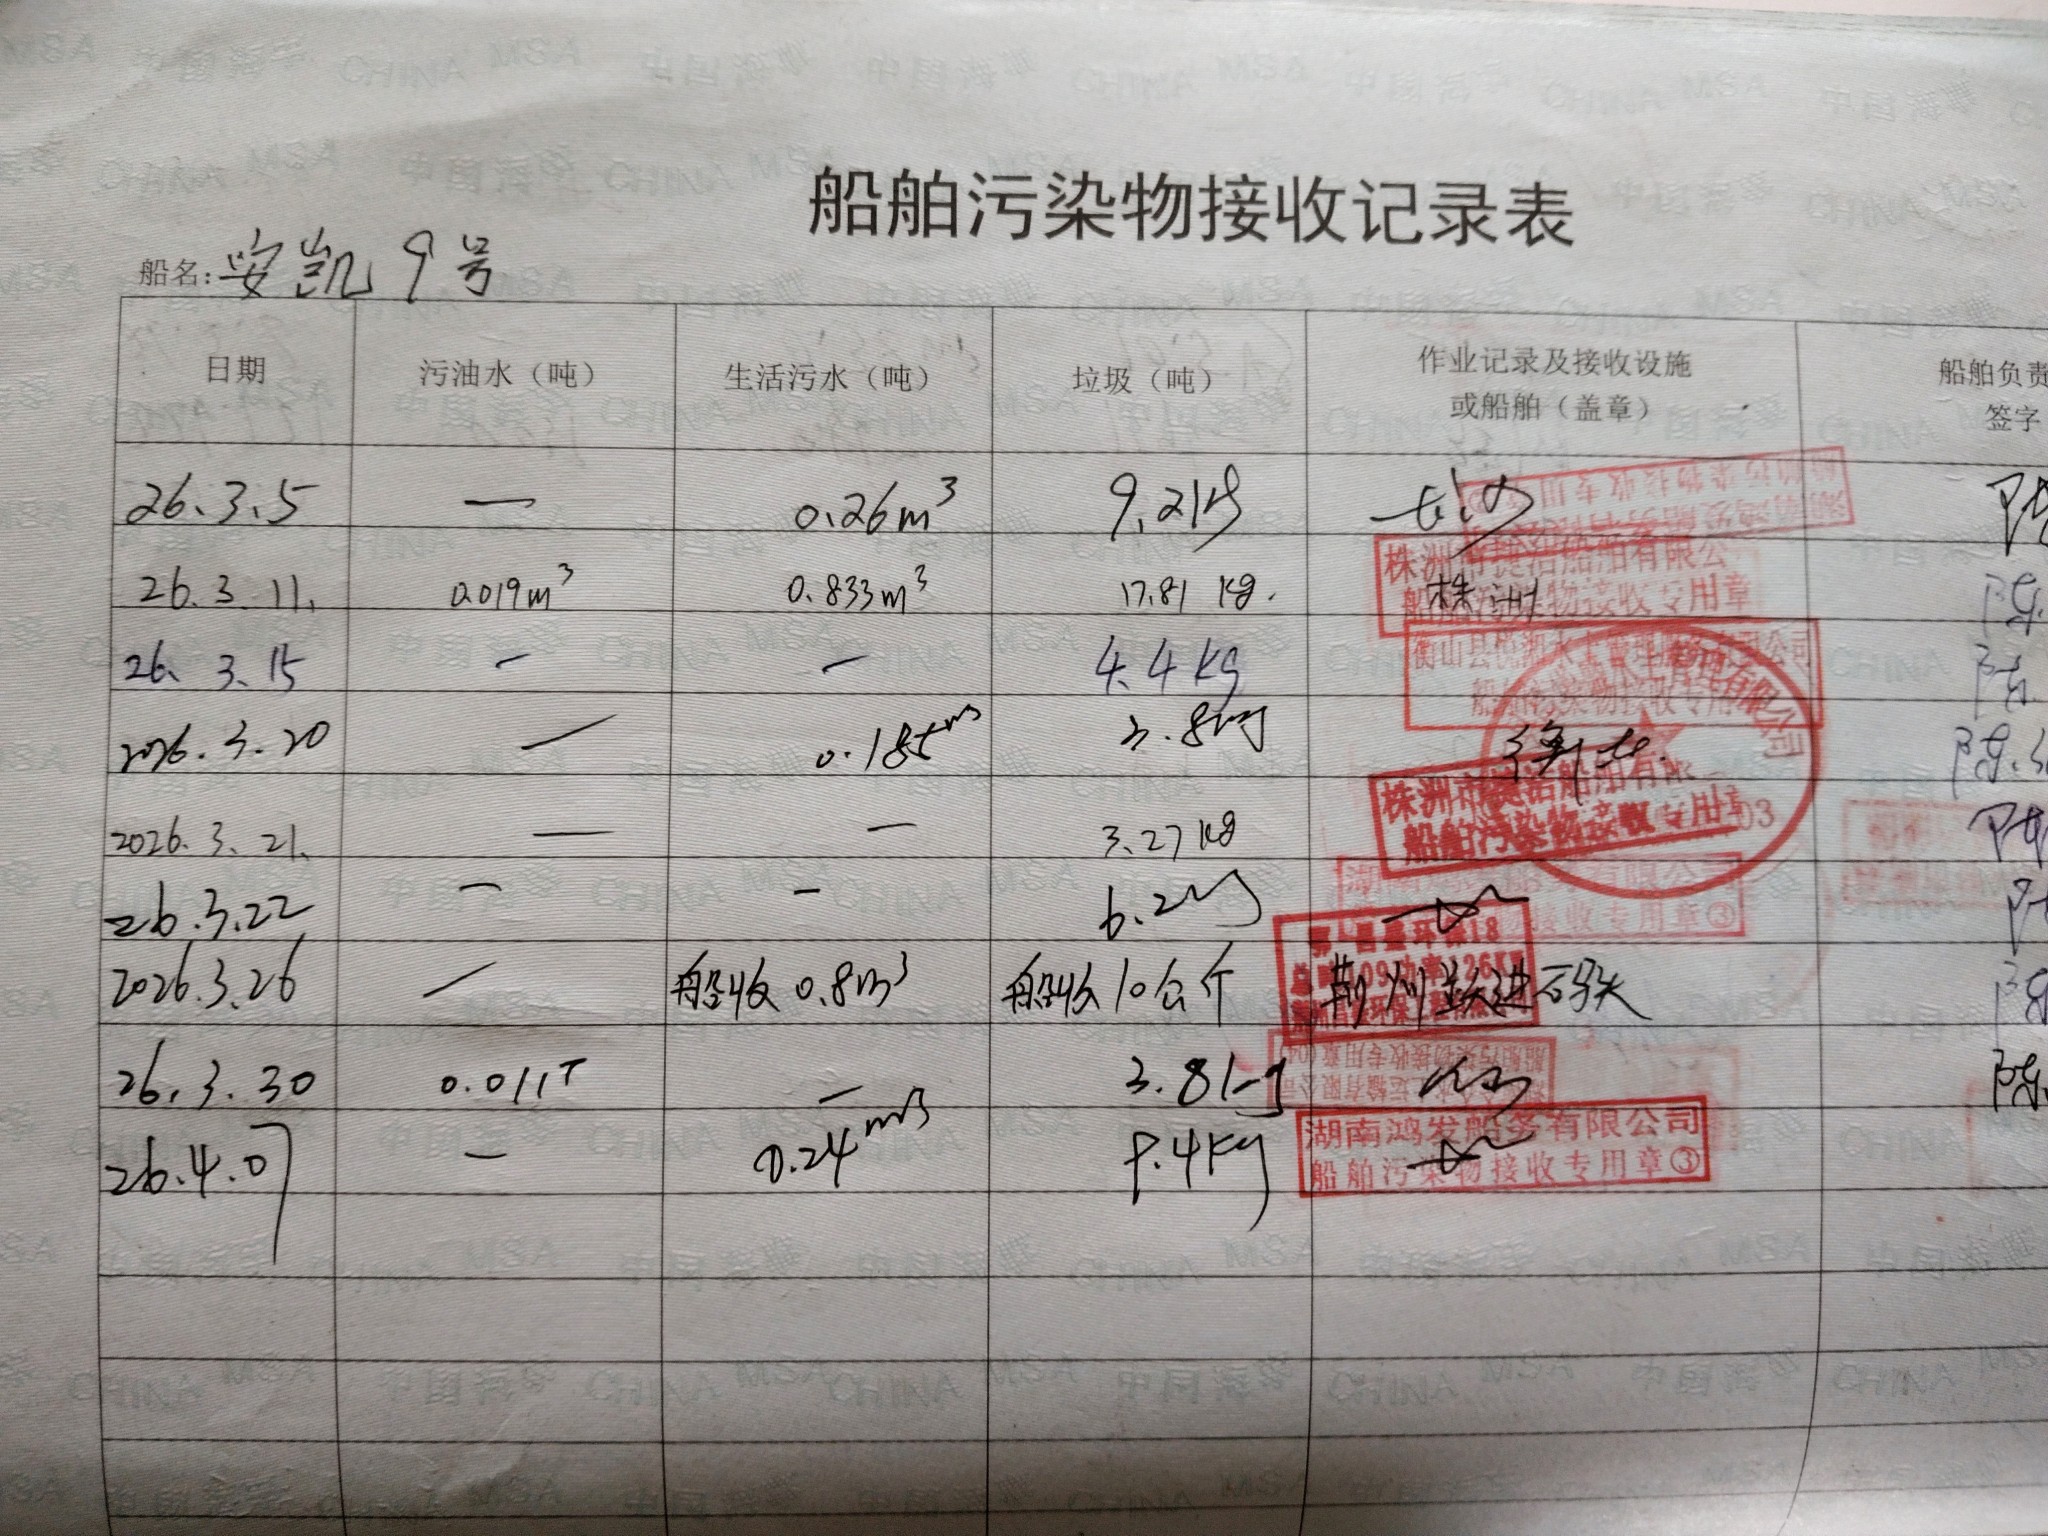 船舶污染物接收记录表
船名: 安凯9号
日期 污油水（吨） 生活污水（吨） 垃圾（吨） 作业记录及接收设施 船舶负责
或船舶（盖章） 签字
26.3.5 — 0.26m³ 9.21kg 长沙
26.3.11. 0.019m³ 0.833m³ 17.81 kg. 株洲 陈
株洲市捷洁船舶有限公
船舶污染物接收专用章
26.3.15 — — 4.4kg 陈
衡山县悦湘水上管理服务有限公司
船舶污染物接收专用
2026.3.20 / 0.185m³ 3.8kg 衡 陈
2026.3.21. — — 3.27kg
株洲市捷洁船舶有限
船舶污染物接收专用章
26.3.22 — — 6.2kg
湖南鸿发船务有限公司
船舶污染物接收专用章③
2026.3.26 / 船收0.8m³ 船收10公斤 荆州跃进码头 陈
26.3.30 0.011T — 3.8kg 陈
船舶污染物接收专用章
26.4.07 — 0.24m³ 9.4kg
湖南鸿发船务有限公司
船舶污染物接收专用章③